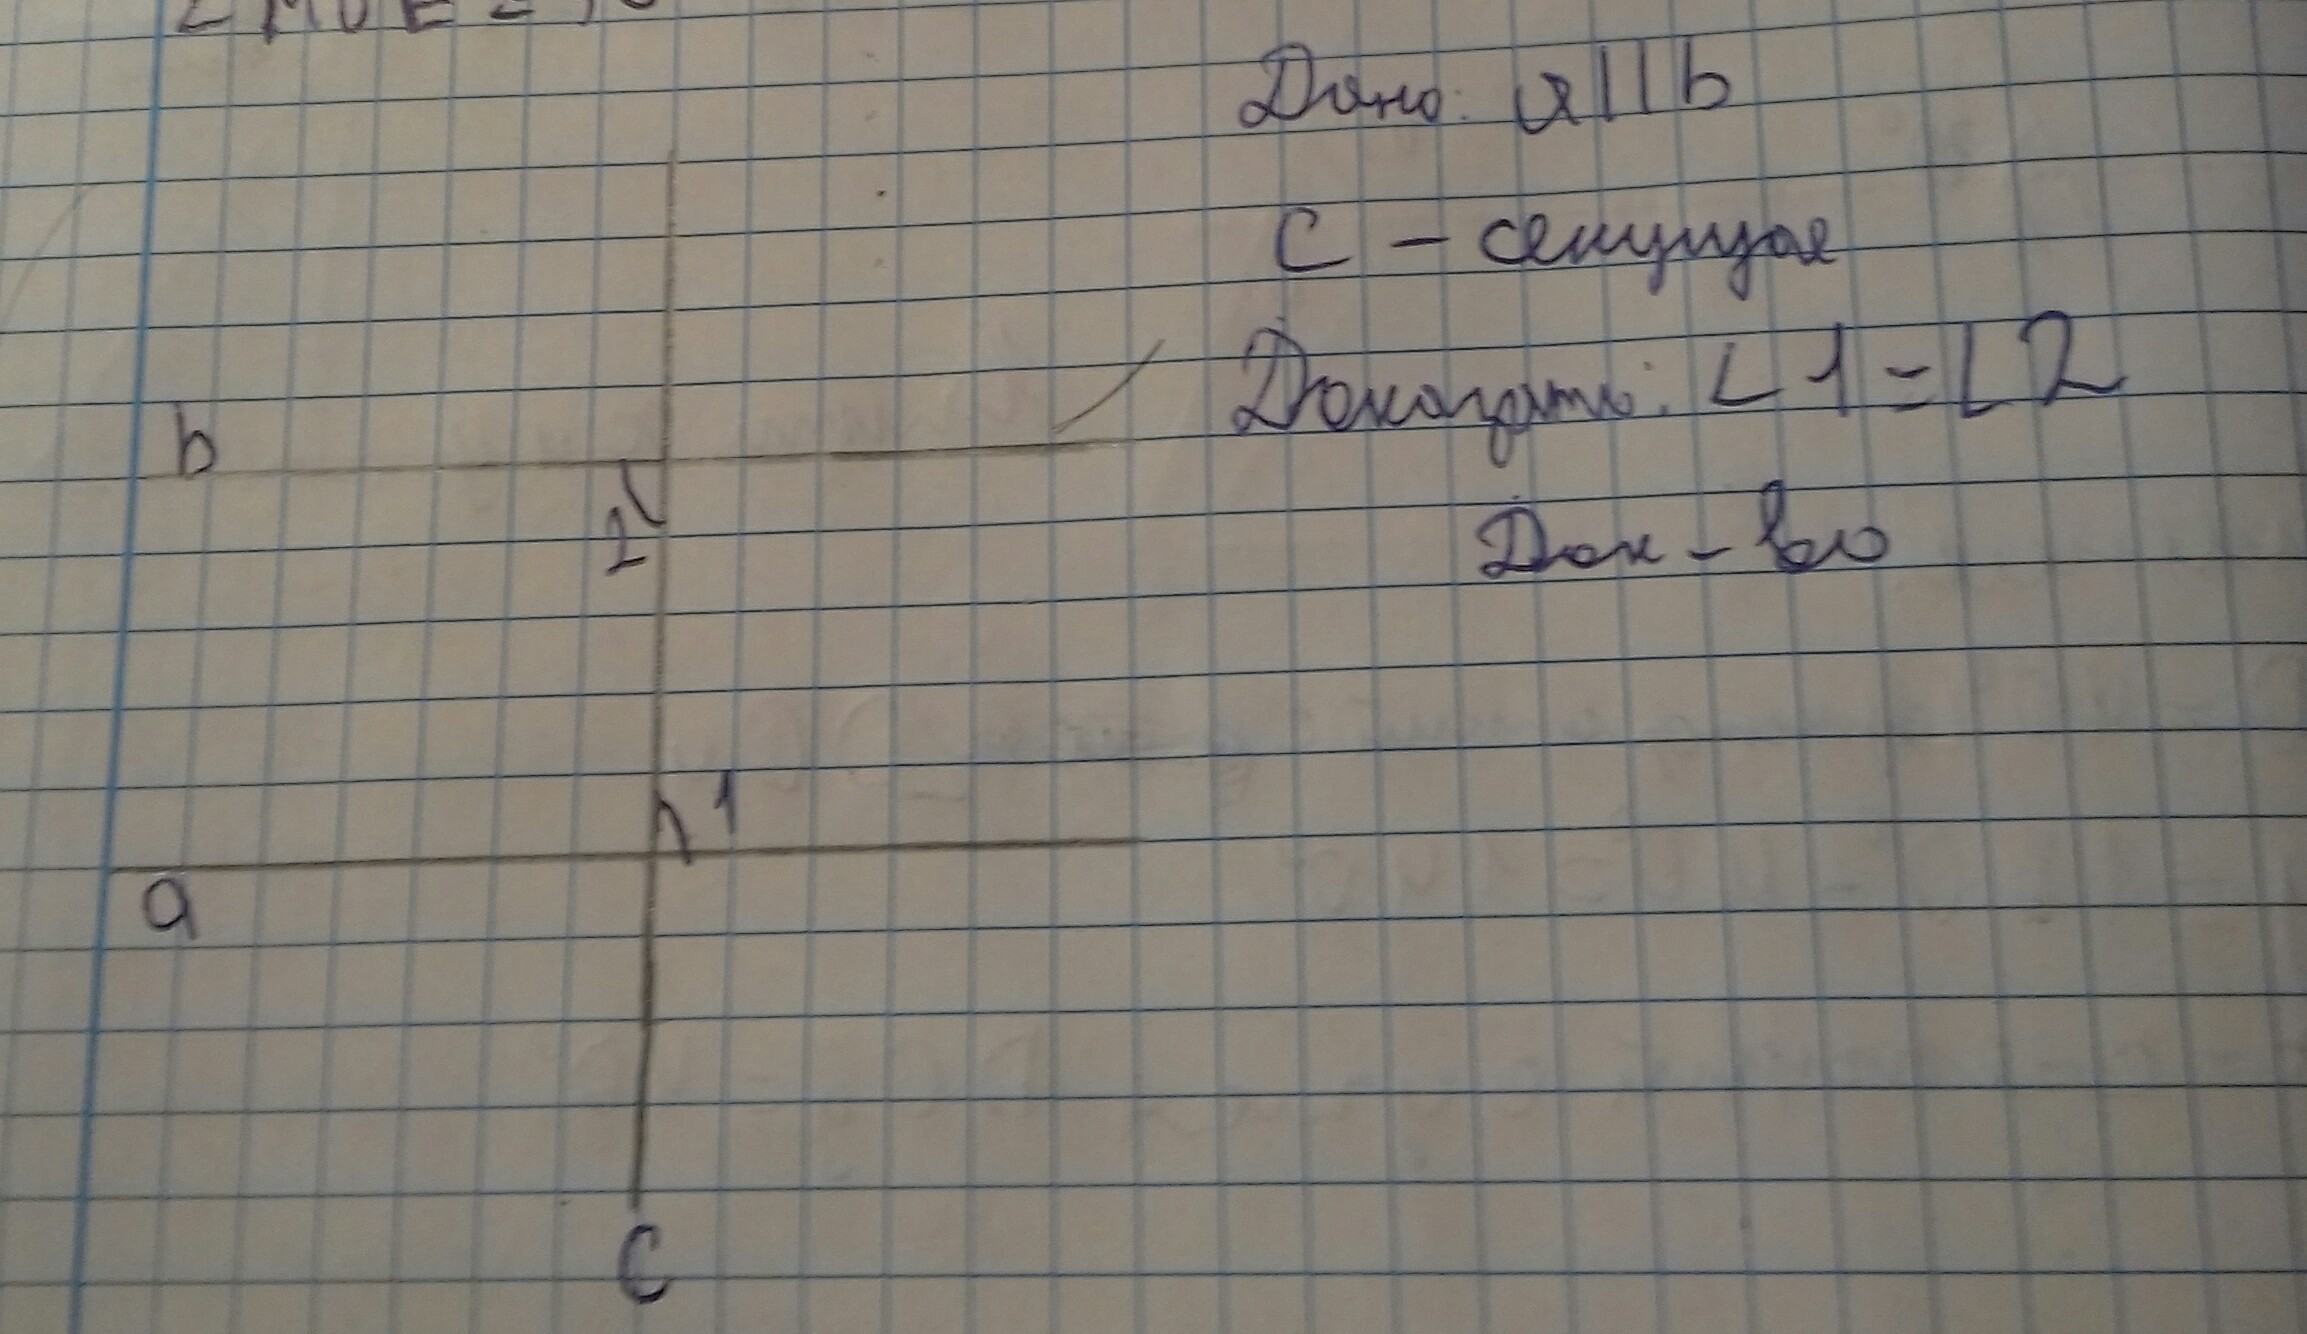 Дано: a||b
C – секущая
Доказать: ∠1=∠2
Док – во
b
2
1
a
C